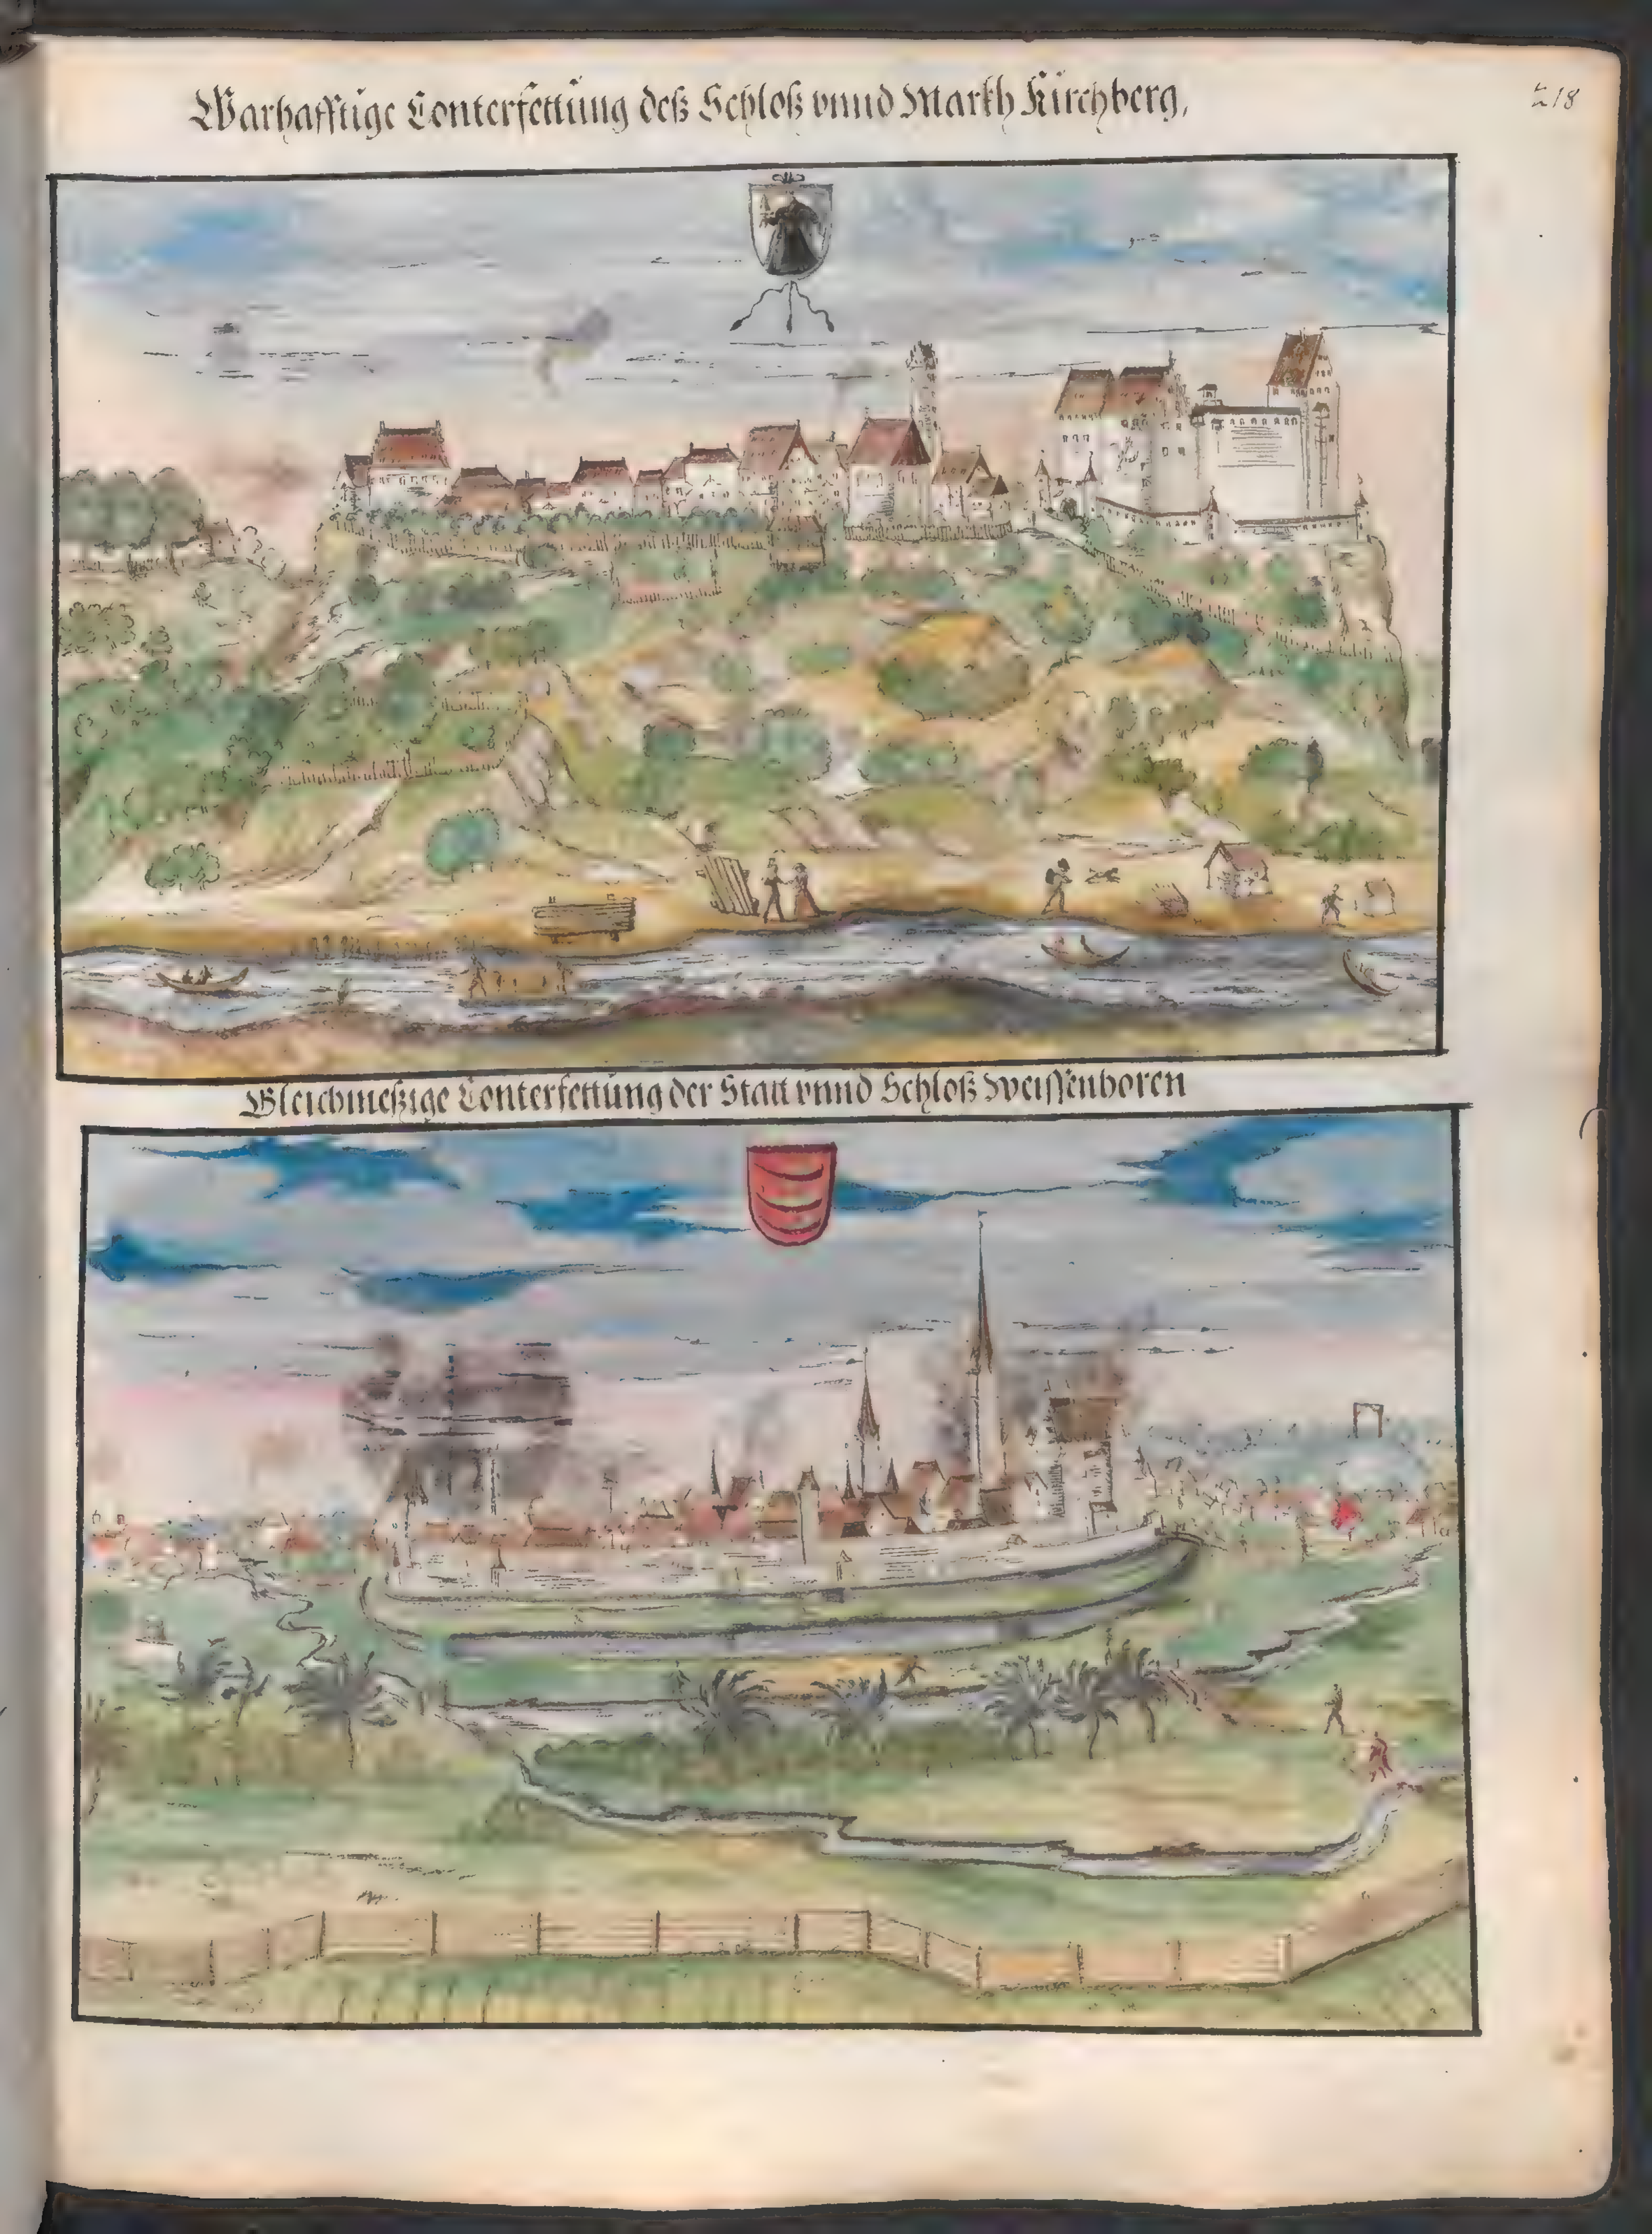 Warhafftige Conterfettüng deß Schloß vnnd Markh Kürchberg,
218
Gleichmeßige Conterfettüng der Statt vnnd Schloß Weissenhoren